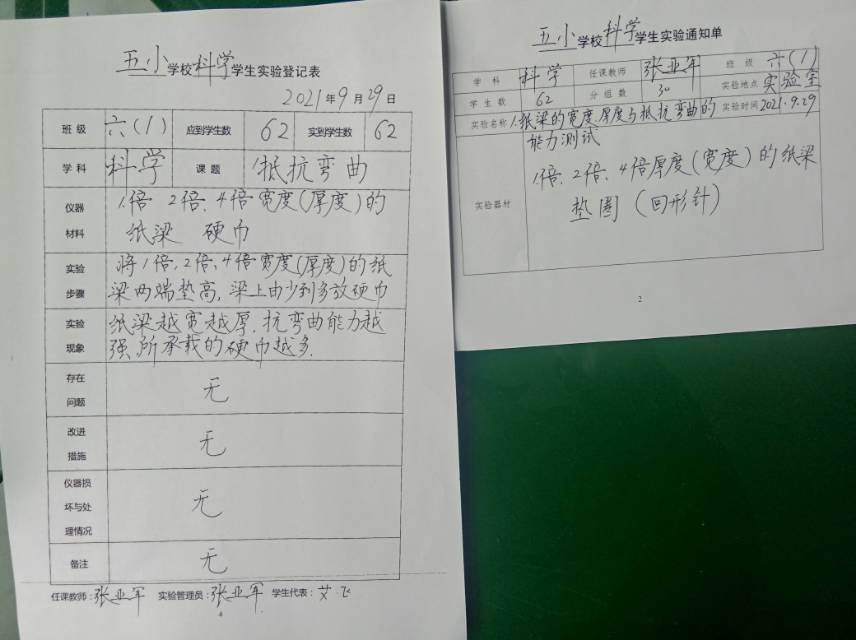 五小学校科学学生实验登记表
2021年9月29日
班级 六(1) 应到学生数 62 实到学生数 62
学科 科学 课题 1抵抗弯曲
仪器材料
1倍 2倍、4倍宽度(厚度)的
纸梁 硬巾
实验步骤
将1倍、2倍、4倍宽度(厚度)的纸
梁两端垫高,梁上由少到多放硬巾
实验现象
纸梁越宽越厚.抗弯曲能力越
强所承载的硬巾越多.
存在问题 无
改进措施 无
仪器损坏与处理情况 无
备注 无
任课教师:张亚军 实验管理员:张亚军 学生代表:艾飞
五小学校科学学生实验通知单
学科 科学 任课教师 张亚军 班级 六(1)
学生数 62 分组数 30 实验地点 实验室
实验名称 1.纸梁的宽度、厚度与抵抗弯曲的 实验时间 2021.9.29
能力测试
实验器材
1倍、2倍、4倍厚度(宽度)的纸梁
垫圈(回形针)
2